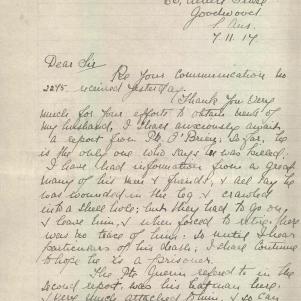 Goodwood
S. Aus.
7.11.17
Dear Sir
Re Your communication no
2295. received yesterday.
Thank You very
much for Your efforts to obtain news of
my husband, I shall anxiously await
a report from Pte. O'Brien. So far, he
is the only one who says he was buried.
I have had information from a great
many of his men & friends, & all say he
was wounded in the leg & crawled
into a shell hole; but they had to go on
& leave him, & when forced to retire, there
was no trace of him. So until I hear
particulars of his death, I shall continue
to hope he is a prisoner.
The Pte. referred to in the
second report, was his batman here.
& very much attached to him, so can